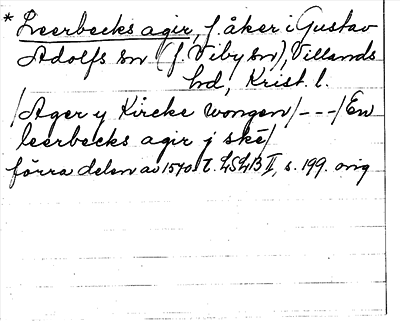 * Leerbecks agir, f. åker i Gustav
Adolfs sn (f. Viby sn), Villands
hd, Krist. l.
/Ager y Kircke wongen/---/En
leerbecks agir j skē/
förra delen av 1540-t. LSLB II, s. 199. orig